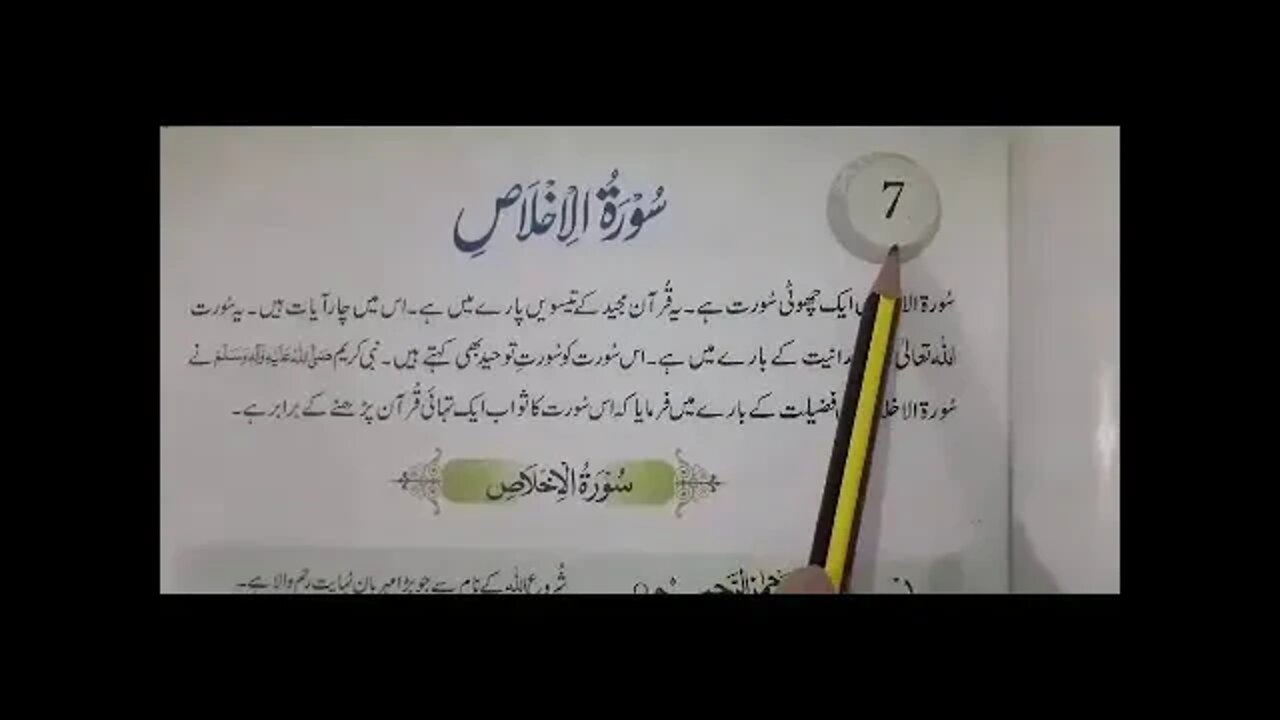 7
سُوْرَةُ الْاِخْلَاصِ
سُورۃ ایک چھوٹی سُورت ہے۔ یہ قُرآن مجید کے تیسویں پارے میں ہے۔ اس میں چار آیات ہیں۔ یہ سُورت
اللہ تعالیٰ کے بارے میں ہے۔ اس سُورت کو سُورتِ توحید بھی کہتے ہیں۔ نبی کریم صَلَّی اللہُ عَلَیْہِ وَآلِہٖ وَسَلَّمَ نے
سُورۃ فضیلت کے بارے میں فرمایا کہ اس سُورت کا ثواب ایک تہائی قُرآن پڑھنے کے برابر ہے۔
سُوْرَةُ الْاِخْلَاصِ
شُروع اللہ کے نام سے جو بڑا مہربان نہایت رحم والا ہے۔